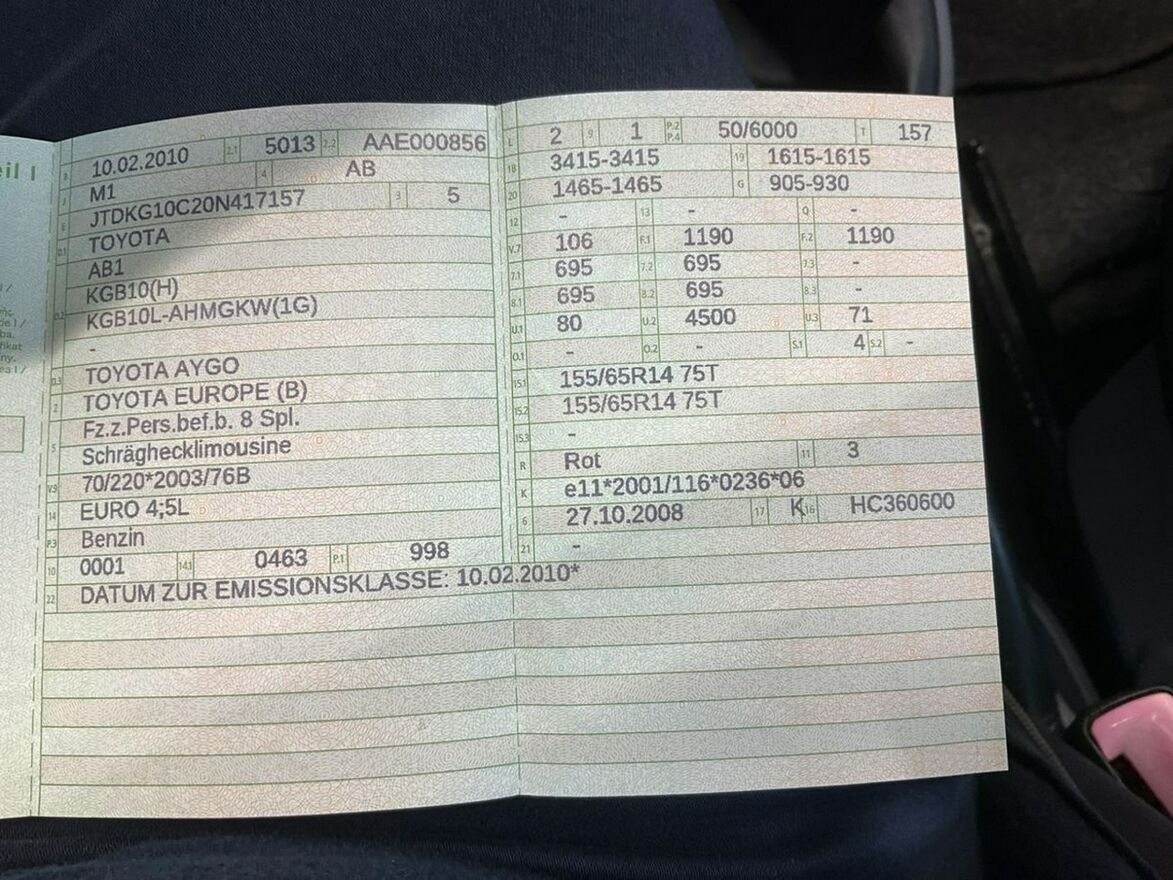 eil I
B 10.02.2010 2.1 5013 2.2 AAE000856
J M1 4 AB
E JTDKG10C20N417157 3 5
D.1 TOYOTA
AB1
D.2 KGB10(H)
KGB10L-AHMGKW(1G)
-
D.3 TOYOTA AYGO
2 TOYOTA EUROPE (B)
5 Fz.z.Pers.bef.b. 8 Spl.
Schräghecklimousine
V.9 70/220*2003/76B
14 EURO 4;5L
P.3 Benzin
10 0001 14.1 0463 P.1 998
22 DATUM ZUR EMISSIONSKLASSE: 10.02.2010*
L 2 9 1 P.2 P.4 50/6000 T 157
18 3415-3415 19 1615-1615
20 1465-1465 G 905-930
12 - 13 - Q -
V.7 106 F.1 1190 F.2 1190
7.1 695 7.2 695 7.3 -
8.1 695 8.2 695 8.3 -
U.1 80 U.2 4500 U.3 71
O.1 - O.2 - S.1 4 S.2 -
15.1 155/65R14 75T
15.2 155/65R14 75T
15.3 -
R Rot 11 3
K e11*2001/116*0236*06
6 27.10.2008 17 K 16 HC360600
21 -